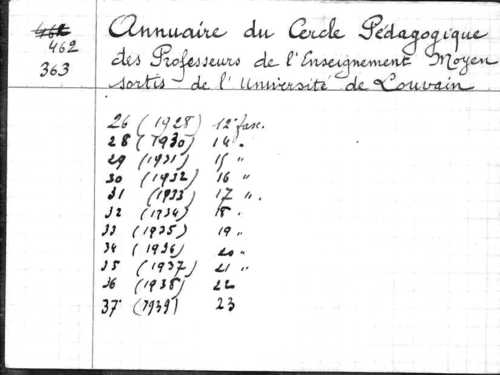 462
363
Annuaire du Cercle Pédagogique
des Professeurs de l'Enseignement Moyen
sortis de l'Université de Louvain
26 (1928) 12e fasc.
28 (1930) 14 "
29 (1931) 15 "
30 (1932) 16 "
31 (1933) 17 ".
32 (1934) 18 "
33 (1935) 19 "
34 (1936) 20 "
35 (1937) 21 "
36 (1938) 22
37 (1939) 23